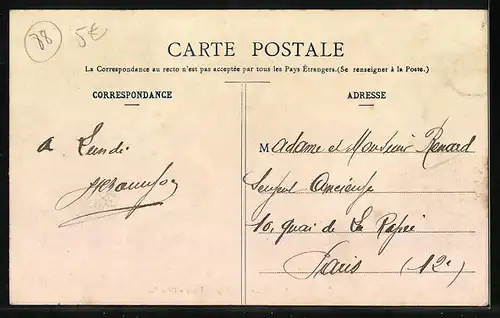 78 5€
CARTE POSTALE
La Correspondance au recto n'est pas acceptée par tous les Pays Étrangers. (Se renseigner à la Poste.)
CORRESPONDANCE
ADRESSE
a Lundi
Madame et Monsieur Renard
10, Quai de La Rapée
Paris (12e)